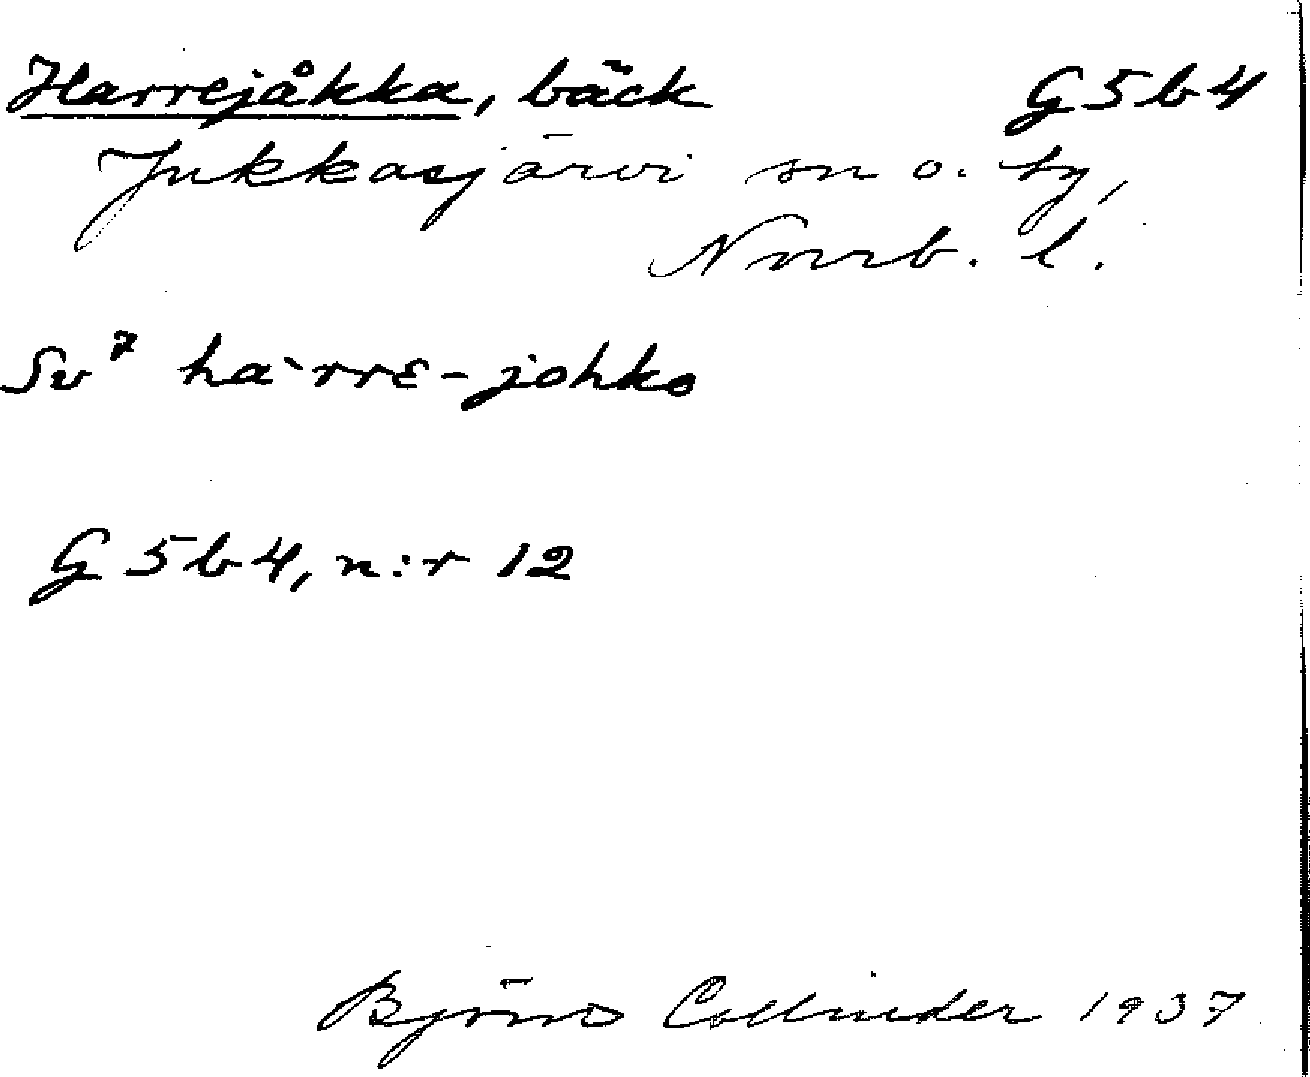 Harrejåkka, bäck G5b4
Jukkasjärvi sn o. tg,
Norrb. l.
Sv⁷ ha`rrɛ-johko
G5b4, n:r 12
Björn Collinder 1937